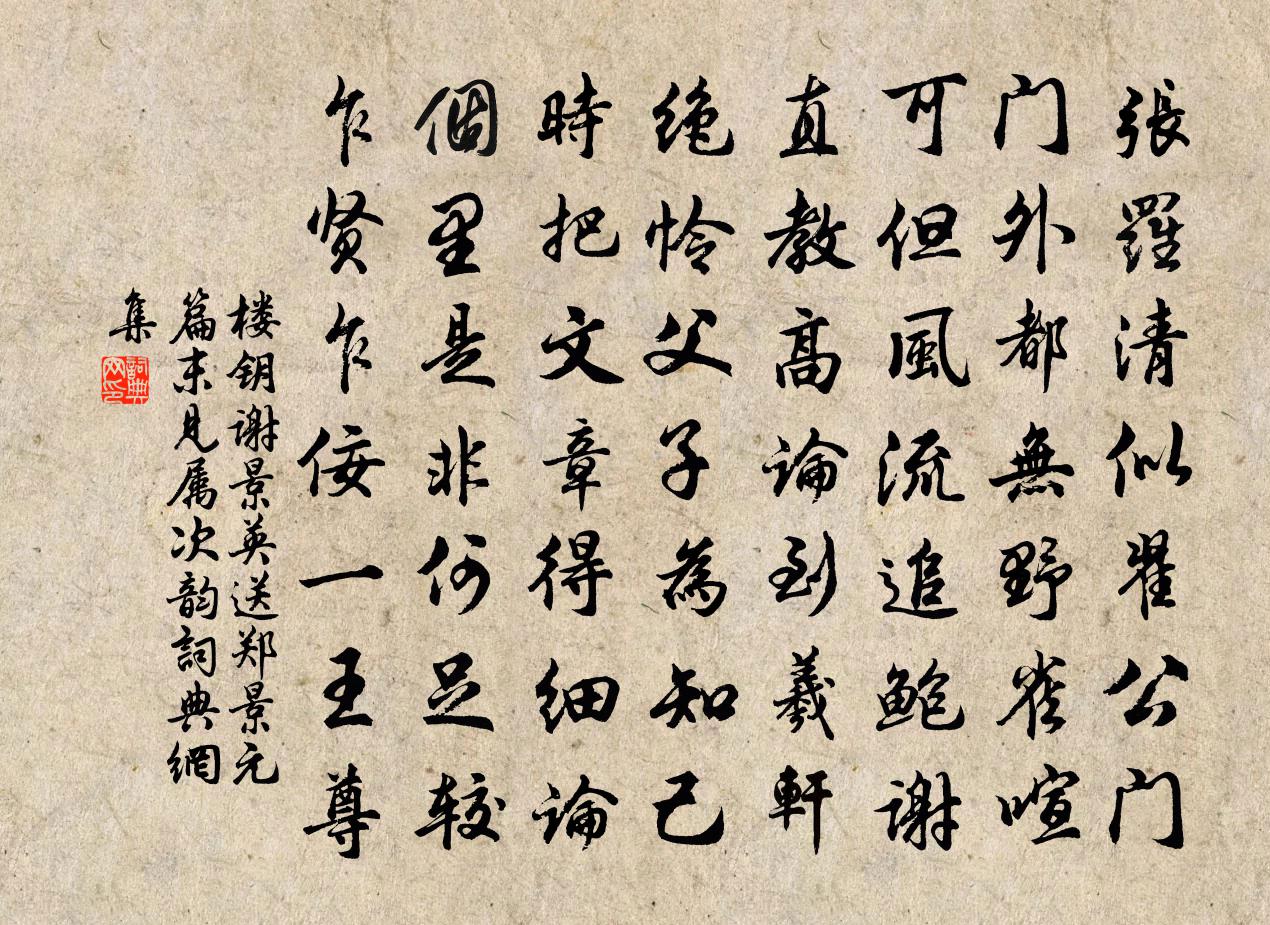 張羅清似翟公门
门外都無野雀喧
可但風流追鮑謝
直教高論到羲軒
绝怜父子為知己
時把文章得细論
個里是非何足较
乍贤乍佞一王尊
楼钥谢景英送郑景元
篇末見属次韵詞典網
集
詞典
网印